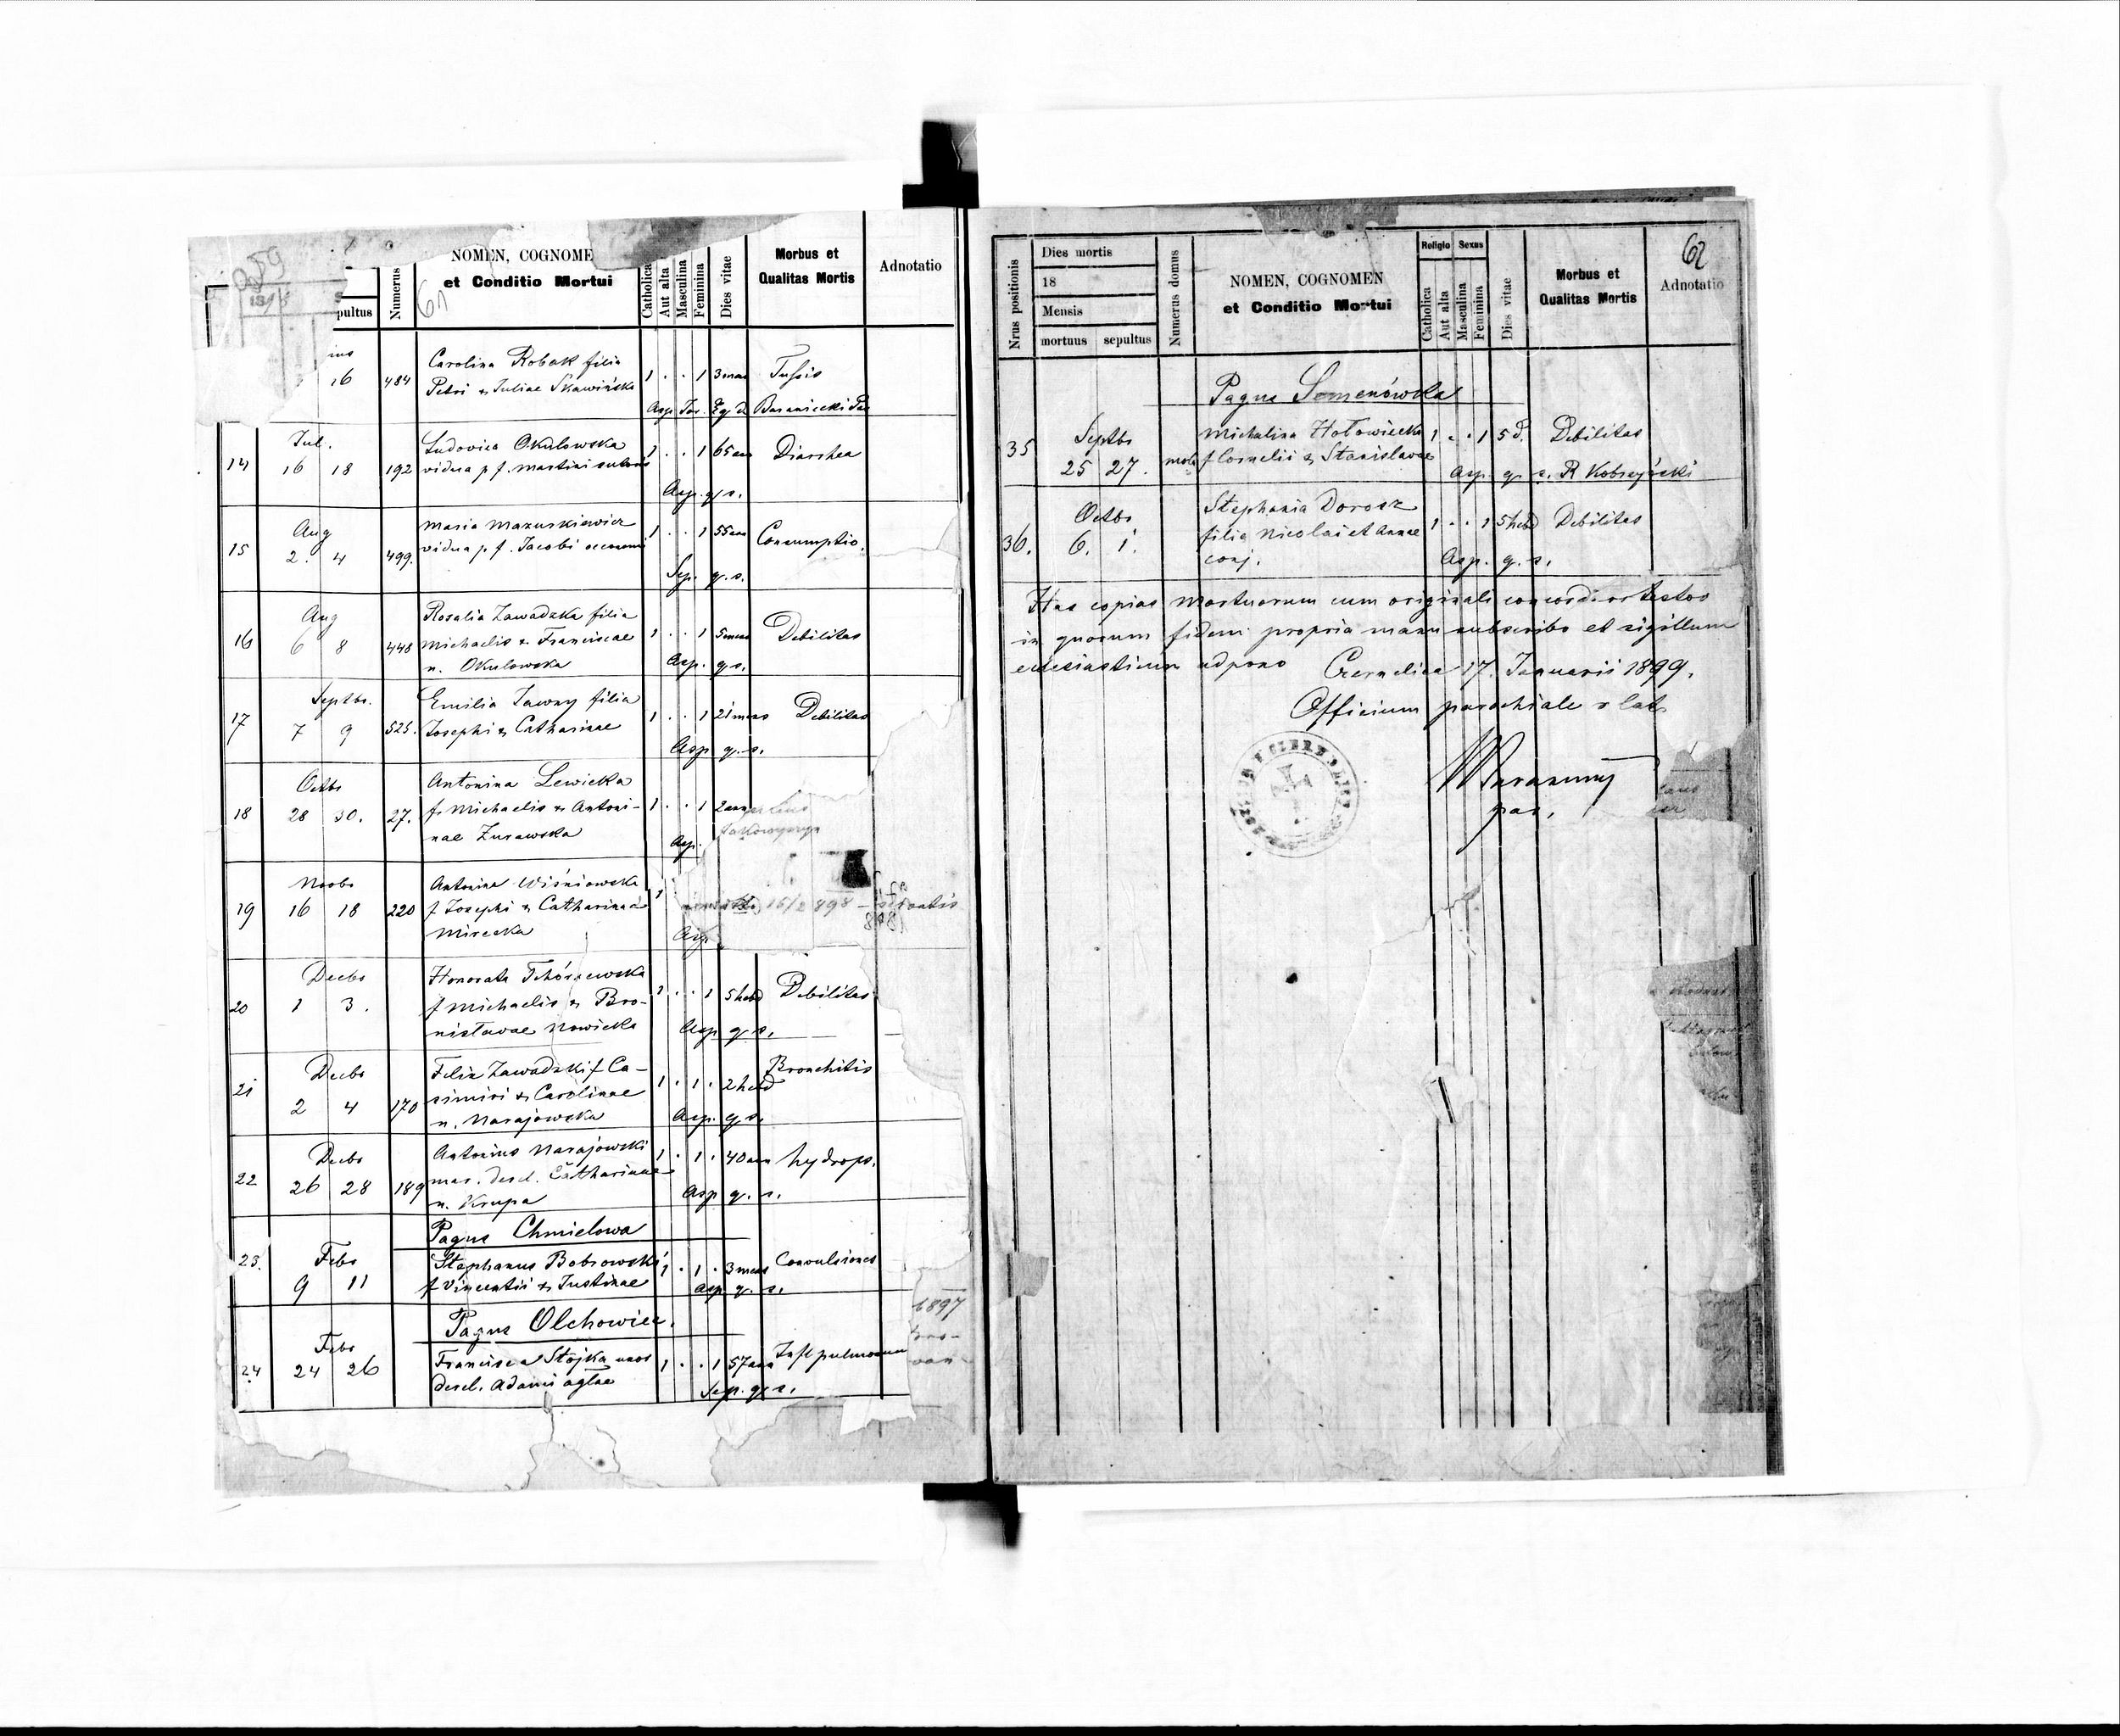 59
61
pultus
Numerus
NOMEN, COGNOME
et Conditio Mortui
Catholica
Aut alta
Masculina
Feminina
Dies vitae
Morbus et
Qualitas Mortis
Adnotatio
ius
16 484 Carolina Robak filia
Petri & Juliae Skawińska 1 . . 1 3 mens Tussis
Asp. Jos. Eq. de Baraniecki Par
14 Jul. 16 18 192 Ludovica Okulowska
vidua p f. Martini sutoris 1 . . 1 65 ann Diarrhea
Asp. q. s.
15 Aug 2. 4 499. Maria Mazurkiewicz
vidua p f. Jacobi oeconomi 1 . . 1 55 ann Consumptio.
Sep. q. s.
16 Aug 6 8 448 Rosalia Zawadzka filia
Michaelis & Franciscae
n. Okulowska 1 . . 1 5 mens Debilitas
Asp. q. s.
17 Septbr. 7 9 525. Emilia Jawny filia
Josephi & Catharinae 1 . . 1 21 mens Debilitas
Asp q. s.
18 Octbr 28 30. 27. Antonina Lewicka
f. Michaelis & Antoni-
nae Żurawska 1 . . 1 2 ann
Asp.
19 Novbr 16 18 220 Antonina Wiśniowska
f Josephi & Catharinae
Mirecka 1
Asp.
15/2 898
20 Decbr 1 3. Honorata Tchórzewska
f Michaelis & Bro-
nislavae Nowicka 1 . . 1 5 hebd Debilitas
Asp q s.
21 Decbr 2 4 170 Felix Zawadzki f Ca-
simiri & Carolinae
n. Narajowska 1 . 1 . 2 hebd Bronchitis
Asp. q s.
22 Decbr 26 28 189 Antonius Narajowski
mar. derel. Catharinae
n. Krupa 1 . 1 . 40 ann hydrops.
Asp q. s.
Pagus Chmielowa
23. Febr 9 11 Stephanus Bobrowski
f Vincentii & Justinae 1 . 1 . 3 mens Convulsiones
asp q. s.
Pagus Olchowiec.
24 Febr 24 26 Francisca Stojka uxor
derel. Adami aglae 1 . . 1 57 ann Infl pulmonum
Sep. q. s.
1897
62
Nrus positionis
Dies mortis
18
Mensis
mortuus sepultus
Numerus domus
NOMEN, COGNOMEN
et Conditio Mortui
Religio Sexus
Catholica
Aut alta
Masculina
Feminina
Dies vitae
Morbus et
Qualitas Mortis
Adnotatio
Pagus Semenówka
35 Septbr 25 27. Michalina Hołowiecka
f Cornelii & Stanislavae 1 . . 1 5 d. Debilitas
Asp. q. s. R Kobrzyński
36. Octbr 6. Stephania Dorosz
filia Nicolai et Annae
conj. 1 . . 1 5 hebd Debilitas
Asp. q. s.
Has copias mortuorum cum originali concordare testor
in quorum fidem propria manu subscribo et sigillum
eclesiasticum adpono Czernelica 17. Januarii 1899.
Officium parochiale r lat
par.